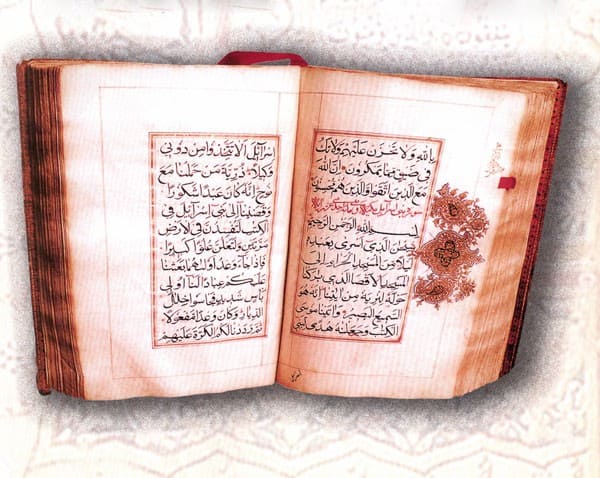 بالله ولا تحزن عليهم ولا تك
في ضيق مما يمكرون ان الله
مع الذين اتقوا والذين هم محسنون
سورة بني اسرائيل
بسم الله الرحمن الرحيم
سبحن الذي اسرى بعبده
ليلا من المسجد الحرام الى
المسجد الاقصا الذي بركنا
حوله لنريه من ايتنا انه هو
السميع البصير واتينا موسى
الكتب وجعلنه هدى لبني
اسرائيل الا تتخذوا من دوني
وكيلا ذرية من حملنا مع
نوح انه كان عبدا شكورا
وقضينا الى بني اسرائيل في
الكتب لتفسدن في الارض
مرتين ولتعلن علوا كبيرا
فاذا جاء وعد اولهما بعثنا
عليكم عبادا لنا اولي
باس شديد فجاسوا خلل
الديار وكان وعدا مفعولا
ثم رددنا لكم الكرة عليهم